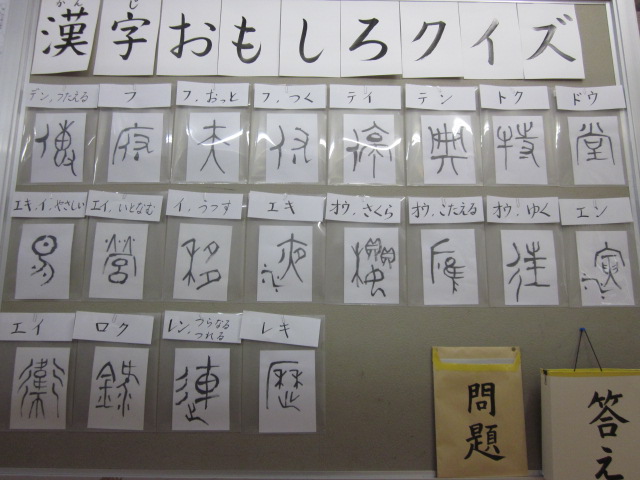 かん じ
漢字おもしろクイズ
デン,つたえる フ フ,おっと フ,つく テイ テン トク ドウ
傳 府 夫 付 停 典 特 堂
エキ,イ,やさしい エイ,いとなむ イ,うつす エキ オウ,さくら オウ,こたえる オウ,ゆく エン
易 營 移 液 櫻 應 往 演
エイ ロク レン,つらなる つれる レキ
衛 録 連 歴
問題
答え